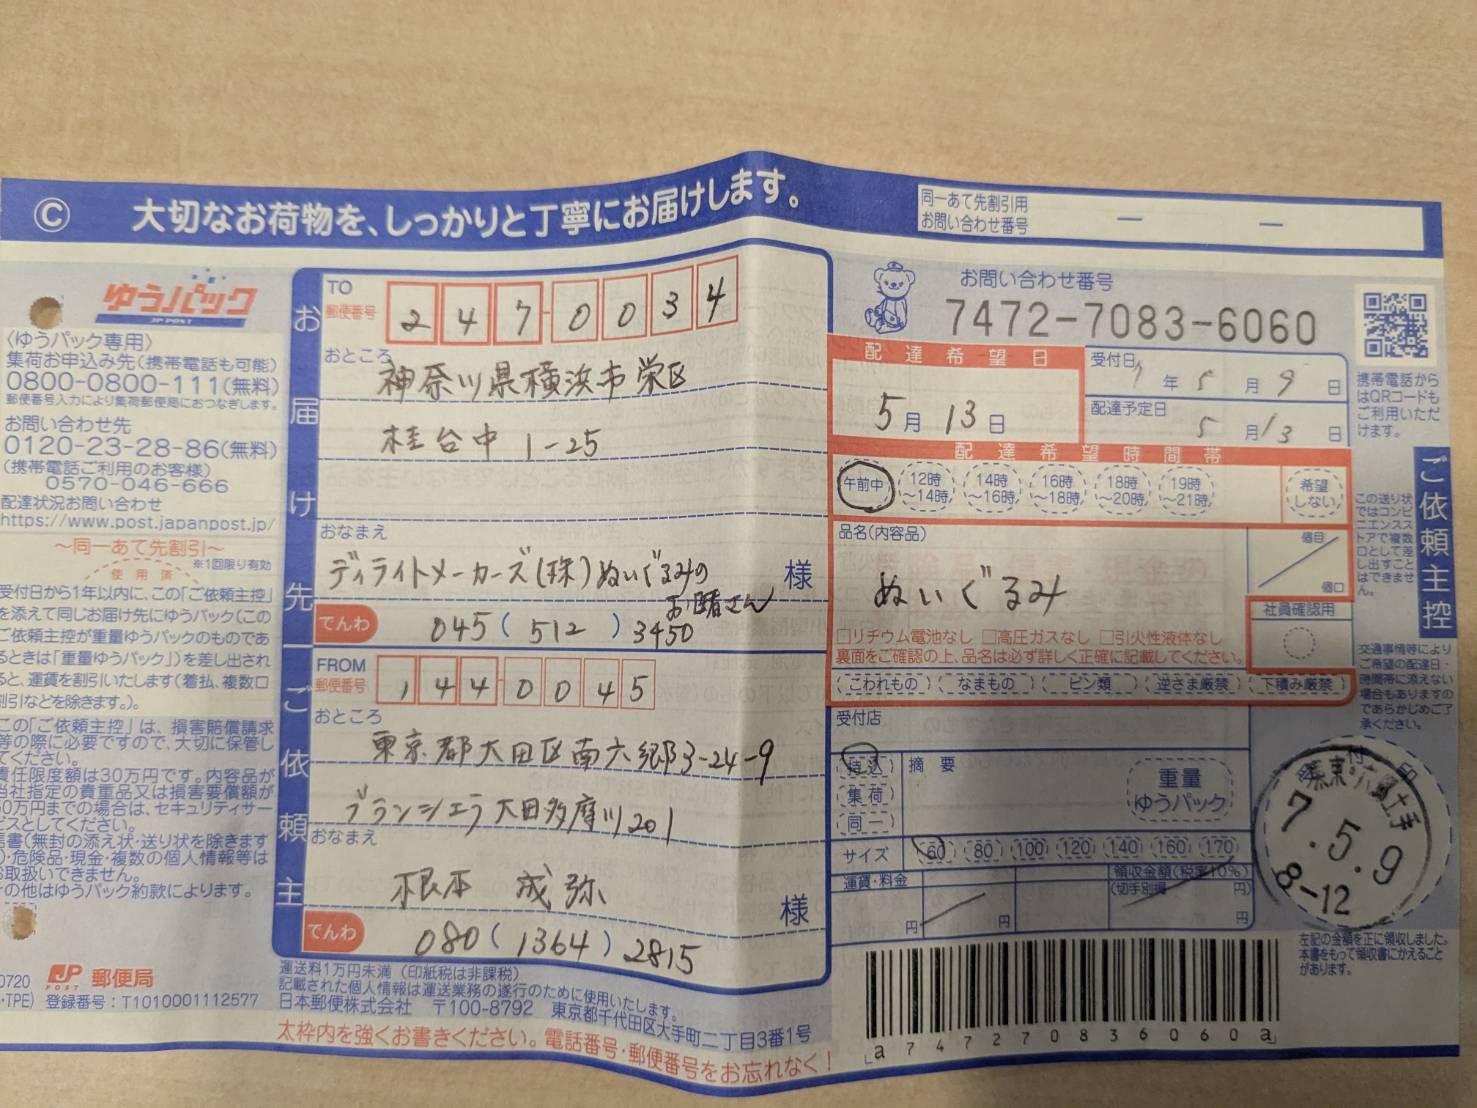 © 大切なお荷物を、しっかりと丁寧にお届けします。
同一あて先割引用
お問い合わせ番号
ゆうパック
JP POST
〈ゆうパック専用〉
集荷お申込み先(携帯電話も可能)
0800-0800-111(無料)
郵便番号入力により集荷郵便局におつなぎします。
お問い合わせ先
0120-23-28-86(無料)
(携帯電話ご利用のお客様)
0570-046-666
配達状況お問い合わせ
https://www.post.japanpost.jp/
〜同一あて先割引〜
※1回限り有効
使用済
受付日から1年以内に、この「ご依頼主控」
を添えて同じお届け先にゆうパック(この
ご依頼主控が重量ゆうパックのものであ
るときは「重量ゆうパック」)を差し出され
ると、運賃を割引いたします(着払、複数口
割引などを除きます。)。
この「ご依頼主控」は、損害賠償請求
等の際に必要ですので、大切に保管し
てください。
責任限度額は30万円です。内容品が
当社指定の貴重品又は損害要償額が
50万円までの場合は、セキュリティサー
ビスとしてください。
信書(無封の添え状・送り状を除きます
)・危険品・現金・複数の個人情報等は
お取扱いできません。
その他はゆうパック約款によります。
0720
・TPE)
JP POST 郵便局
登録番号:T1010001112577
お届け先
TO
郵便番号
247-0034
おところ
神奈川県横浜市栄区
桂台中 1-25
おなまえ
ディライトメーカーズ(株)ぬいぐるみの
お医者さん 様
でんわ 045(512)3450
ご依頼主
FROM
郵便番号
144-0045
おところ
東京都大田区南六郷3-24-9
ブランシエラ大田多摩川201
おなまえ
根本 成弥 様
でんわ 080(1364)2815
運送料1万円未満(印紙税は非課税)
記載された個人情報は運送業務の遂行のために使用いたします。
日本郵便株式会社 〒100-8792 東京都千代田区大手町二丁目3番1号
太枠内を強くお書きください。電話番号・郵便番号をお忘れなく!
お問い合わせ番号
7472-7083-6060
配達希望日
5月13日
受付日
7年5月9日
配達予定日
5月13日
配達希望時間帯
午前中
12時〜14時
14時〜16時
16時〜18時
18時〜20時
19時〜21時
希望しない
品名(内容品)
ぬいぐるみ
個目
個口
社員確認用
□リチウム電池なし □高圧ガスなし □引火性液体なし
裏面をご確認の上、品名は必ず詳しく正確に記載してください。
こわれもの なまもの ビン類 逆さま厳禁 下積み厳禁
受付店
持込
集荷
同一
摘要
重量
ゆうパック
サイズ 60 80 100 120 140 160 170
運賃・料金
円
円
領収金額(税率10%)
(切手別握 円)
円
a747270836060a
携帯電話から
はQRコードも
ご利用いただ
けます。
ご依頼主控
この送り状
ではコンビ
ニエンスス
トアで複数
口として差
し出すこと
はできませ
ん。
交通事情等により
ご希望の配達日・
時間帯に添えない
場合もありますの
であらかじめご了
承ください。
受付印
7.5.9
8-12
左記の金額を正に領収しました。
本書をもって領収書にかえること
があります。